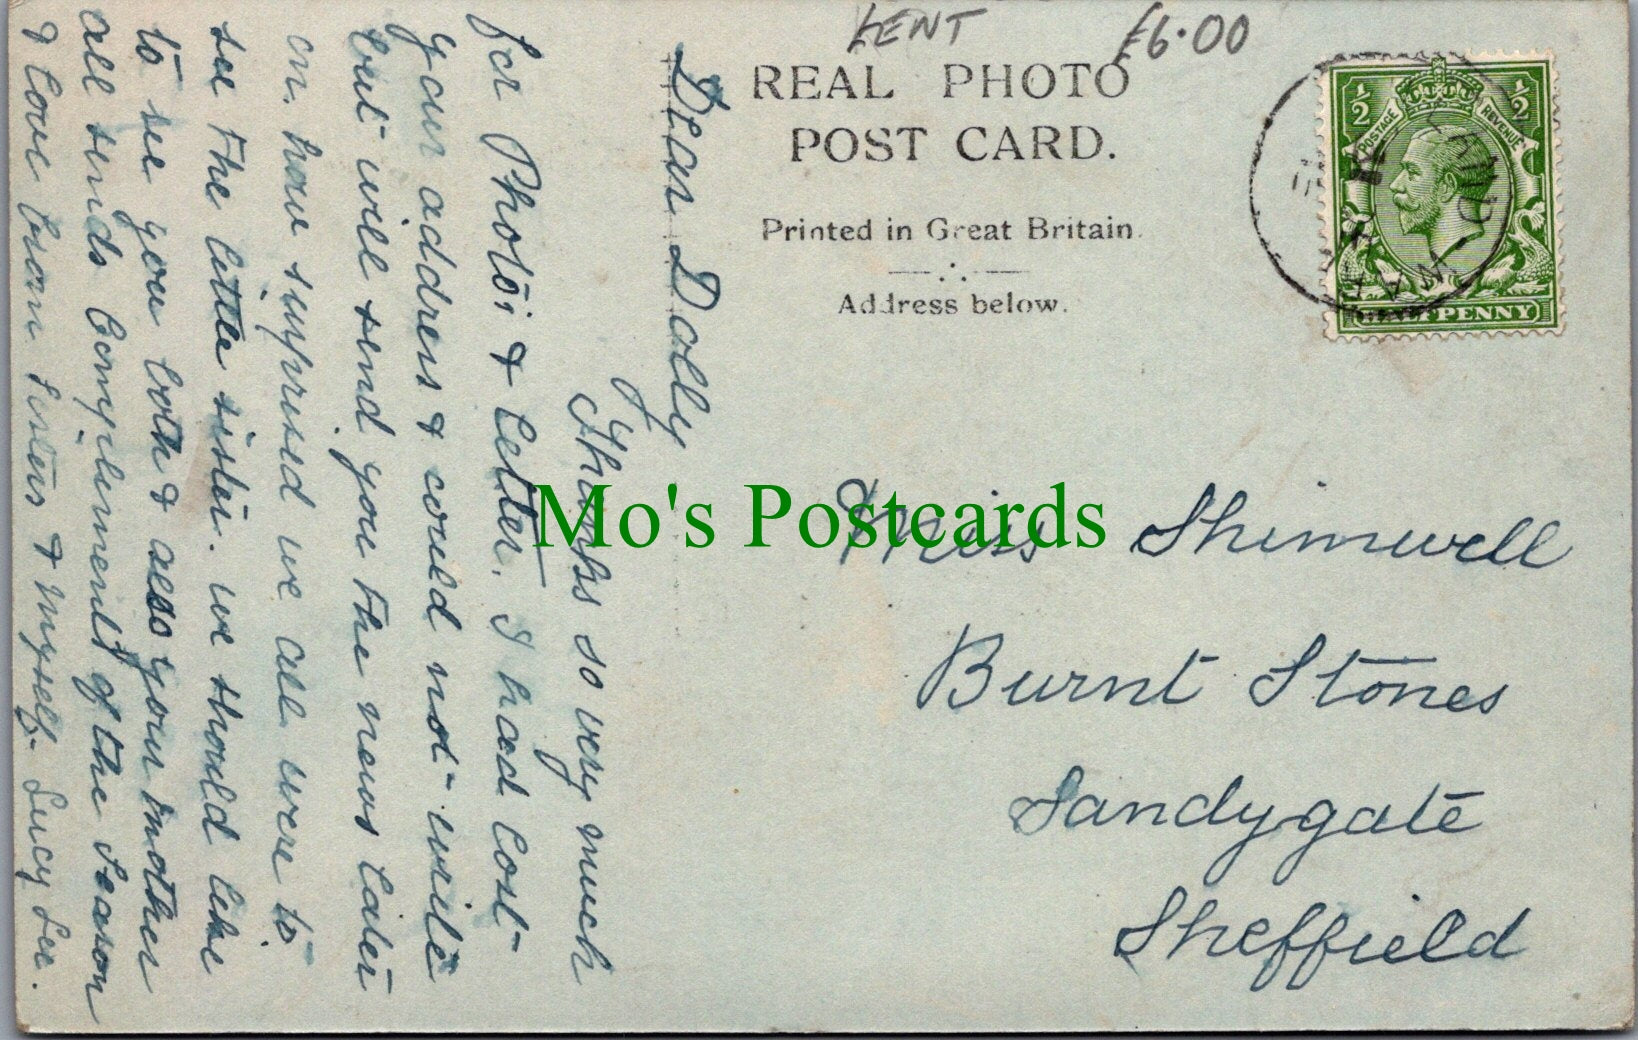 KENT £6.00
REAL PHOTO
POST CARD.
Printed in Great Britain.
Address below.
½ ½
POSTAGE REVENUE
HALFPENNY
Dear Dolly
Thanks so very much
for Photo; & Letter. I had lost
your address & could not write
but will send you the news later
on. how suprised we all were to
see the little sister. we should like
to see you both & also your mother
all sends Compliments of the Season
& Love from Sisters & myself. Lucy Lee.
Miss Shimwell
Burnt Stones
Sandygate
Sheffield
Mo's Postcards